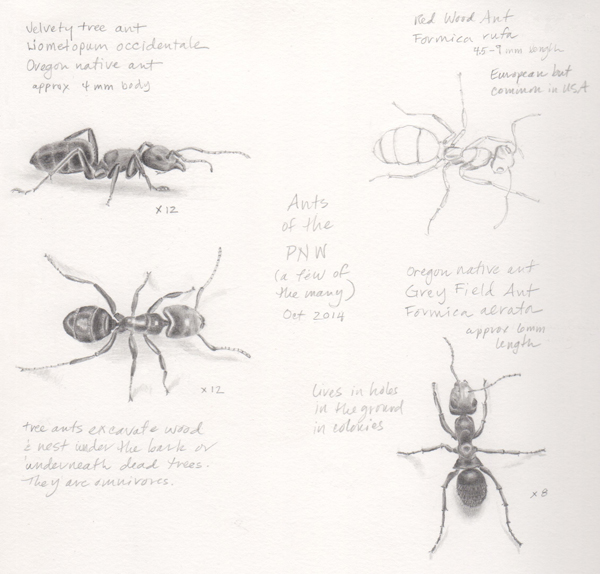 Velvety tree ant
Liometopum occidentale
Oregon native ant
approx 4mm body
x12
Red Wood Ant
Formica rufa
4.5-9mm length
European but
common in USA
Ants
of the
PNW
(a few of
the many)
Oct 2014
x12
tree ants excavate wood
& nest under the bark or
underneath dead trees.
They are omnivores.
Oregon native ant
Grey Field Ant
Formica aerata
approx 6mm
length
lives in holes
in the ground
in colonies
x8